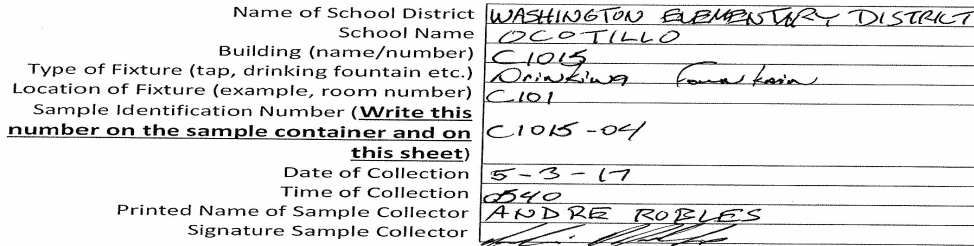 Name of School District WASHINGTON ELEMENTARY DISTRICT
School Name OCOTILLO
Building (name/number) C1015
Type of Fixture (tap, drinking fountain etc.) Drinking Fountain
Location of Fixture (example, room number) C101
Sample Identification Number (Write this
number on the sample container and on C1015-04
this sheet)
Date of Collection 5-3-17
Time of Collection 0540
Printed Name of Sample Collector ANDRE ROBLES
Signature Sample Collector